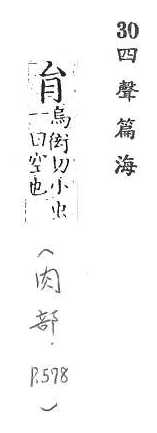 30四聲篇海
䏍
烏衒切小虫
一曰空也
(肉部. P.578)